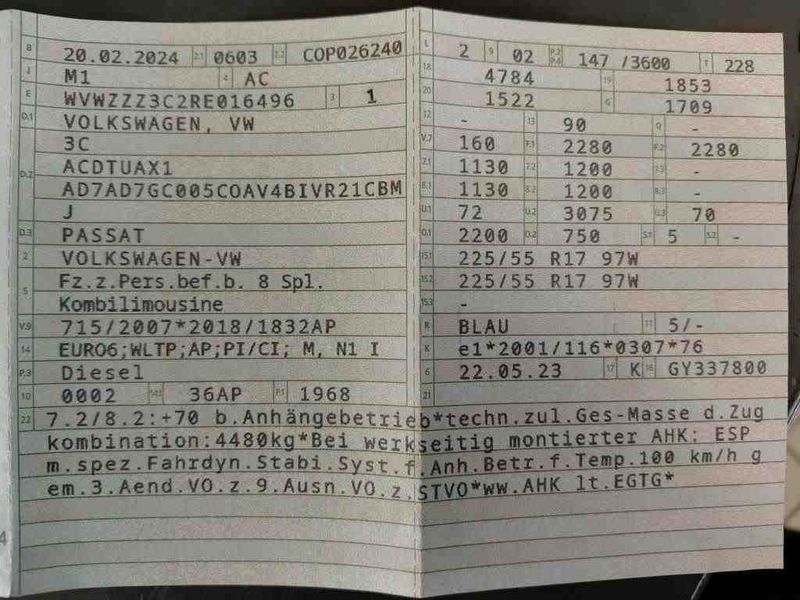 B 20.02.2024 2.1 0603 2.2 COP026240
J M1 4 AC
E WVWZZZ3C2RE016496 3 1
D.1 VOLKSWAGEN, VW
3C
D.2 ACDTUAX1
AD7AD7GC005COAV4BIVR21CBM
J
D.3 PASSAT
2 VOLKSWAGEN-VW
5 Fz.z.Pers.bef.b. 8 Spl.
Kombilimousine
V.9 715/2007*2018/1832AP
14 EURO6;WLTP;AP;PI/CI; M, N1 I
P.3 Diesel
10 0002 14.1 36AP P.1 1968
L 2 9 02 P.2 P.4 147 /3600 T 228
18 4784 19 1853
20 1522 G 1709
12 - 13 90 Q -
V.7 160 F.1 2280 F.2 2280
7.1 1130 7.2 1200 7.3 -
8.1 1130 8.2 1200 8.3 -
U.1 72 U.2 3075 U.3 70
O.1 2200 O.2 750 S.1 5 S.2 -
15.1 225/55 R17 97W
15.2 225/55 R17 97W
15.3 -
R BLAU 11 5/-
K e1*2001/116*0307*76
6 22.05.23 17 K 16 GY337800
21
22 7.2/8.2:+70 b.Anhängebetrieb*techn.zul.Ges-Masse d.Zug
kombination:4480kg*Bei werkseitig montierter AHK: ESP
m.spez.Fahrdyn.Stabi.Syst.f.Anh.Betr.f.Temp.100 km/h g
em.3.Aend.VO.z.9.Ausn.VO.z.STVO*ww.AHK lt.EGTG*
4